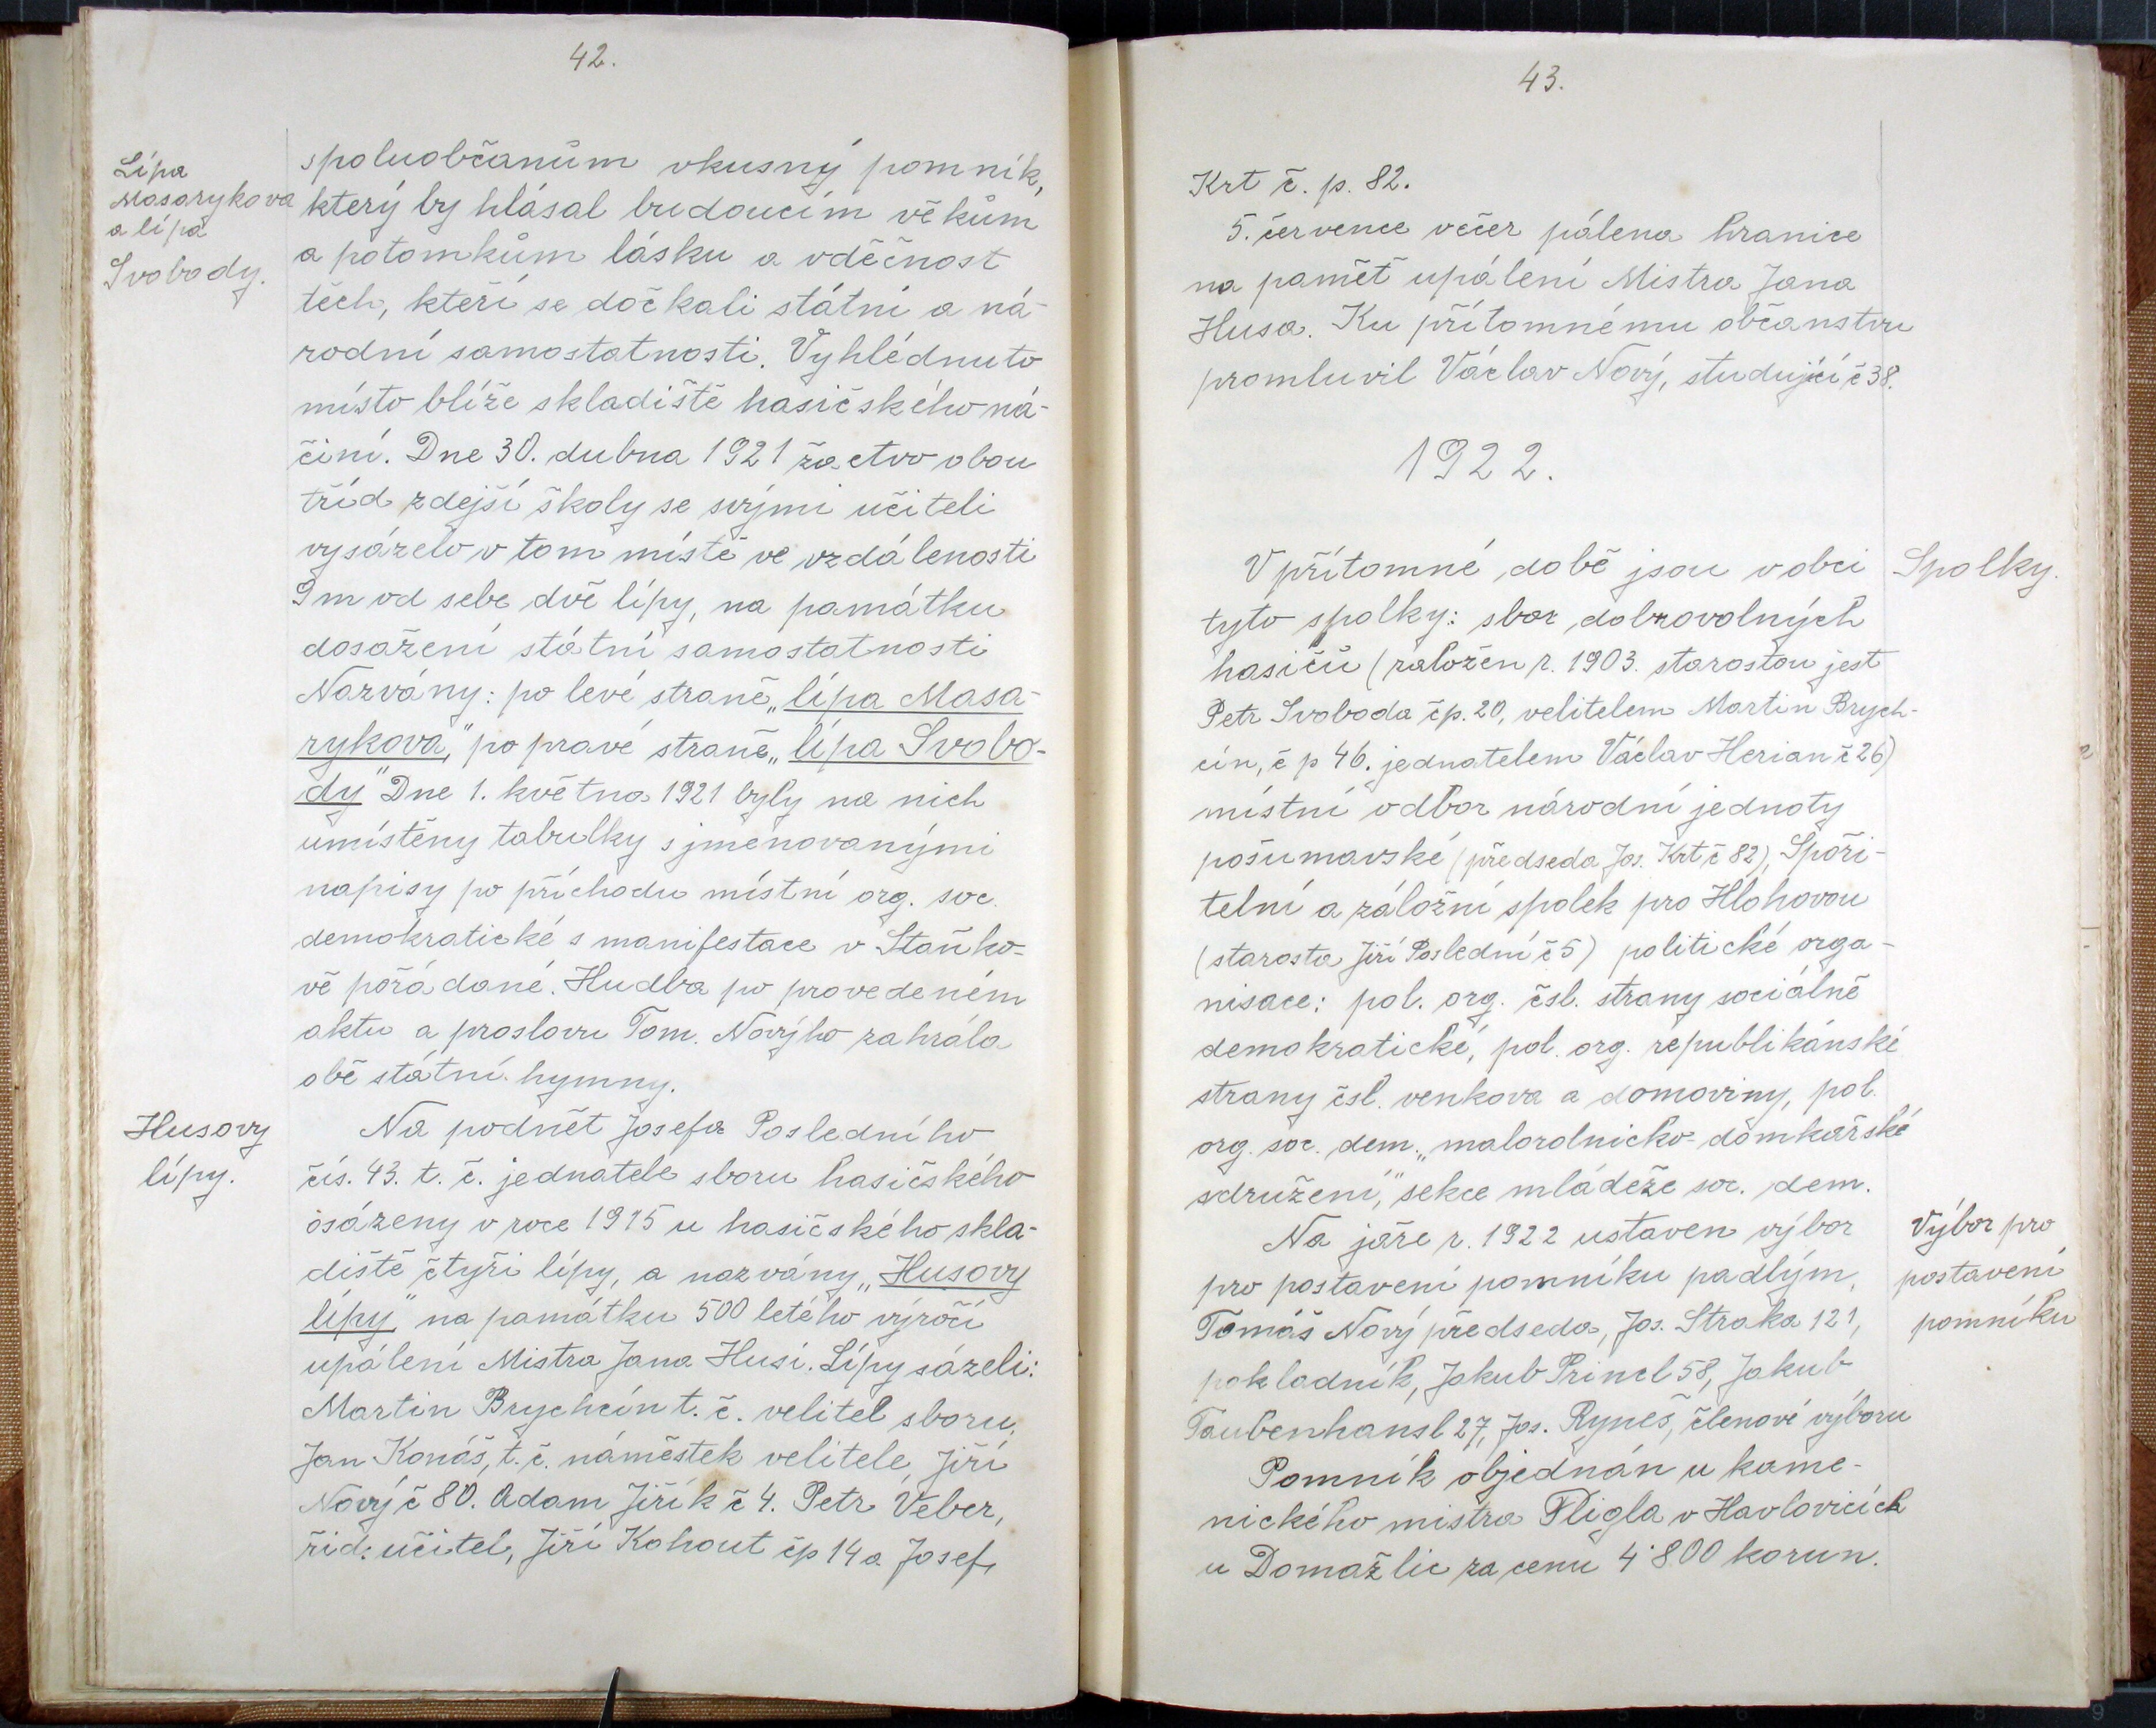 42.
Lípa
Masarykova
a lípa
Svobody.
spoluobčanům vkusný pomník,
který by hlásal budoucím věkům
a potomkům lásku a vděčnost
těch, kteří se dočkali státní a ná-
rodní samostatnosti. Vyhlédnuto
místo blíže skladiště hasičského ná-
činí. Dne 30. dubna 1921 žactvo obou
tříd zdejší školy se svými učiteli
vysázelo v tom místě ve vzdálenosti
9 m od sebe dvě lípy, na památku
dosažení státní samostatnosti
Nazvány: po levé straně „lípa Masa-
rykova," po pravé straně „lípa Svobo-
dy" Dne 1. května 1921 byly na nich
umístěny tabulky s jmenovanými
napisy po příchodu místní org. soc.
demokratické s manifestace v Staňko-
vě pořádané. Hudba po provedeném
aktu a proslovu Tom. Novýho zahrála
obě státní hymny.
Husovy
lípy.
Na podnět Josefa Posledního
čís. 43. t. č. jednatele sboru hasičského
osázeny v roce 1915 u hasičského skla-
diště čtyři lípy, a nazvány „Husovy
lípy" na památku 500 letého výročí
upálení Mistra Jana Husi. Lípy sázeli:
Martin Brychcín t. č. velitel sboru,
Jan Konáš, t. č. náměstek velitele, Jiří
Nový č 80. Adam Jiřík č 4. Petr Veber,
říd. učitel, Jiří Kohout čp 14 a Josef
43.
Krt č. p. 82.
5. července večer pálena hranice
na pamět upálení Mistra Jana
Husa. Ku přítomnému občanstvu
promluvil Václav Nový, studující č 38.
1922.
Spolky.
V přítomné době jsou v obci
tyto spolky: sbor dobrovolných
hasičů (založen r. 1903. starostou jest
Petr Svoboda čp. 20, velitelem Martin Brych-
cín, č p 46. jednatelem Václav Herian č 26)
místní odbor národní jednoty
pošumavské (předseda Jos. Krt č 82), Spoři-
telní a záložní spolek pro Hlohovou
(starosta Jiří Poslední č 5) politické orga-
nisace: pol. org. čsl. strany sociálně
demokratické, pol. org. republikánské
strany čsl. venkova a domoviny, pol.
org. soc. dem. „malorolnicko-domkařské
sdružení," sekce mládeže soc. dem.
Výbor pro
postavení
pomníku
Na jaře r. 1922 ustaven výbor
pro postavení pomníku padlým,
Tomáš Nový předseda, Jos. Straka 121,
pokladník, Jakub Princl 58, Jakub
Taubenhansl 27, Jos. Ryneš, členové výboru
Pomník objednán u kame-
nického mistra Fligla v Havlovicích
u Domažlic za cenu 4˙800 korun.